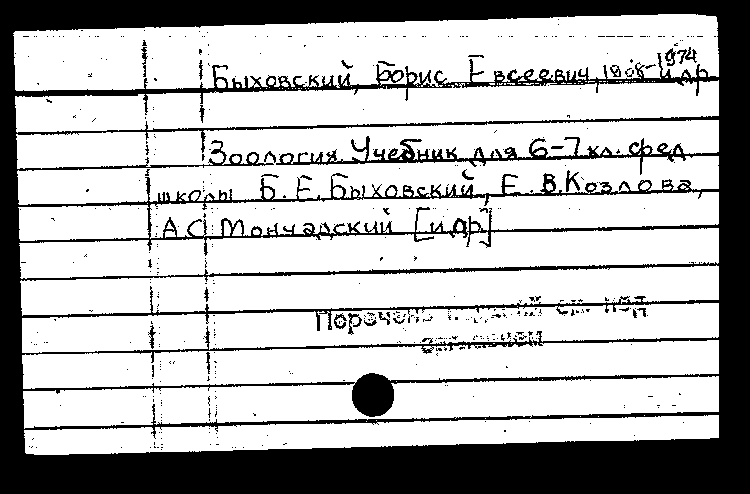 Быховский, Борис Евсеевич, 1908-1974 и др.
Зоология. Учебник для 6-7 кл. сред.
школы Б. Е. Быховский, Е. В. Козлова,
А С Мончадский [и др]
Перечень изданий см. под